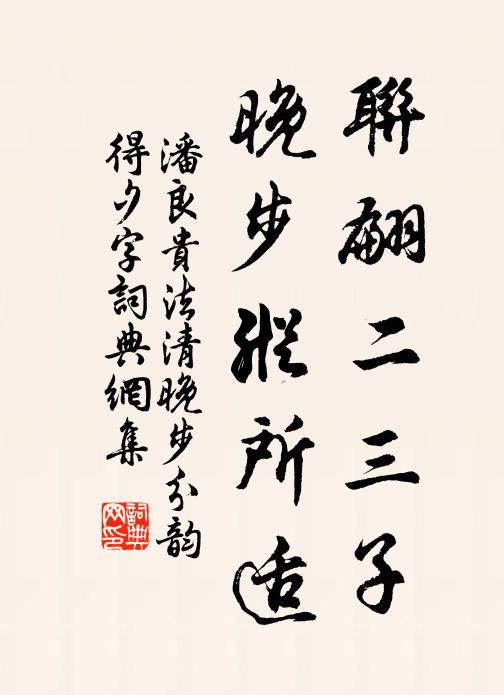 聯翩二三子
晚步縱所适
潘良貴法清晚步分韵
得夕字詞典網集
詞典網印